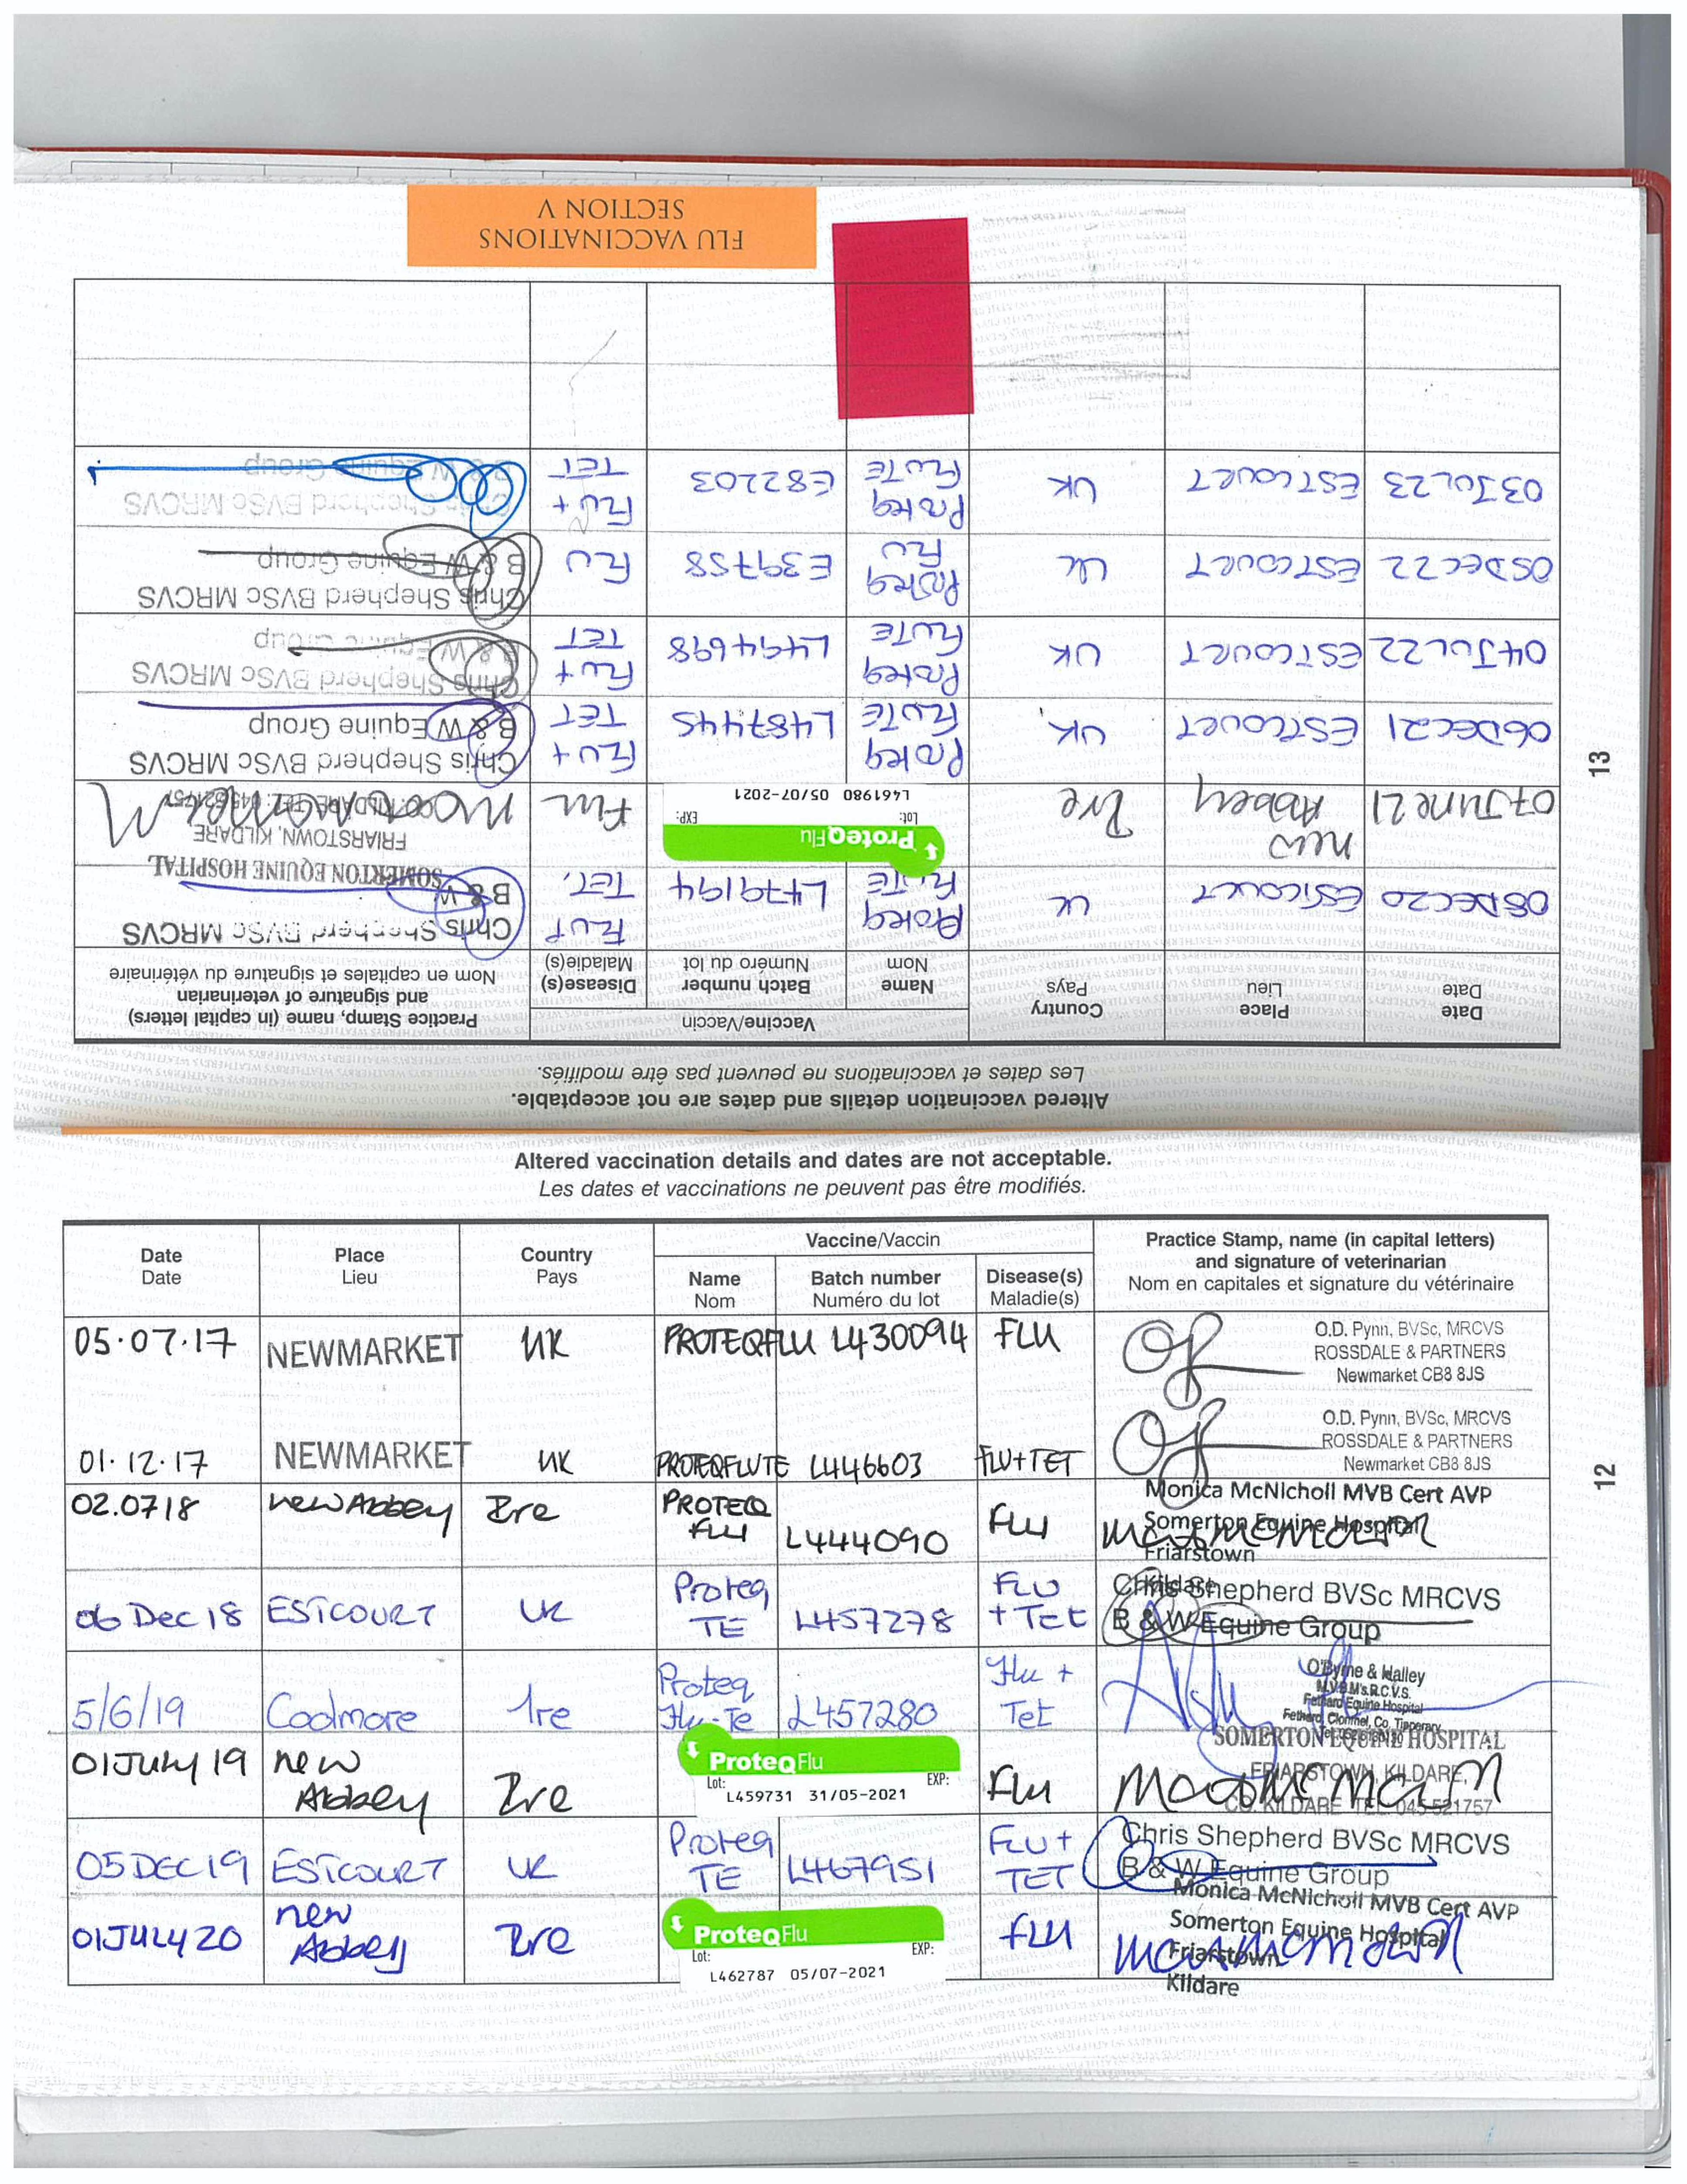 FLU VACCINATIONS
SECTION V
Altered vaccination details and dates are not acceptable.
Les dates et vaccinations ne peuvent pas être modifiés.
Date
Date
Place
Lieu
Country
Pays
Vaccine/Vaccin
Name
Nom
Batch number
Numéro du lot
Disease(s)
Maladie(s)
Practice Stamp, name (in capital letters)
and signature of veterinarian
Nom en capitales et signature du vétérinaire
05.07.17 NEWMARKET UK PROTEQFLU L430094 FLU
O.D. Pynn, BVSc, MRCVS
ROSSDALE & PARTNERS
Newmarket CB8 8JS
01.12.17 NEWMARKET UK PROTEQFLUTE L446603 FLU+TET
O.D. Pynn, BVSc, MRCVS
ROSSDALE & PARTNERS
Newmarket CB8 8JS
02.0718 new Abbey Ire PROTEQ FLU L444090 Flu
Monica McNicholl MVB Cert AVP
Somerton Equine Hospital
Friarstown
Kildare
06 Dec 18 ESTCOURT UK Proteq TE L457278 FLU + TET
Chris Shepherd BVSc MRCVS
B & W Equine Group
5/6/19 Coolmore Ire Proteq Flu-Te L457280 Flu + Tet
O'Byrne & Halley
M.V.B. M's.R.C.V.S.
Fethard Equine Hospital
Fethard, Clonmel, Co. Tipperary
01 July 19 new Abbey Ire
ProteqFlu
Lot: EXP:
L459731 31/05-2021
Flu
SOMERTON EQUINE HOSPITAL
FRIARSTOWN, KILDARE,
CO. KILDARE TEL: 045-521757
05 DEC 19 ESTCOURT UK Proteq TE L467951 FLU + TET
Chris Shepherd BVSc MRCVS
B & W Equine Group
01 JULY 20 new Abbey Ire
ProteqFlu
Lot: EXP:
L462787 05/07-2021
Flu
Monica McNicholl MVB Cert AVP
Somerton Equine Hospital
Friarstown
Kildare
12
Altered vaccination details and dates are not acceptable.
Les dates et vaccinations ne peuvent pas être modifiés.
Date
Date
Place
Lieu
Country
Pays
Vaccine/Vaccin
Name
Nom
Batch number
Numéro du lot
Disease(s)
Maladie(s)
Practice Stamp, name (in capital letters)
and signature of veterinarian
Nom en capitales et signature du vétérinaire
08 DEC 20 ESTCOURT UK Proteq FLUTE L479194 FLU+ TET.
Chris Shepherd BVSc MRCVS
B & W
07 June 21 new Abbey Ire
ProteqFlu
Lot: EXP:
L461980 05/07-2021
Flu
SOMERTON EQUINE HOSPITAL
FRIARSTOWN, KILDARE
CO. KILDARE TEL: 045-521757
06 DEC 21 ESTCOURT UK Proteq FLUTE L487445 FLU + TET
Chris Shepherd BVSc MRCVS
B & W Equine Group
04 JUL 22 ESTCOURT UK Proteq FLUTE L494698 FLU + TET
Chris Shepherd BVSc MRCVS
B & W Equine Group
05 DEC 22 ESTCOURT UK Proteq FLU E39758 FLU
Chris Shepherd BVSc MRCVS
B & W Equine Group
03 JUL 23 ESTCOURT UK Proteq FLUTE E82203 FLU + TET
Chris Shepherd BVSc MRCVS
B & W Equine Group
13